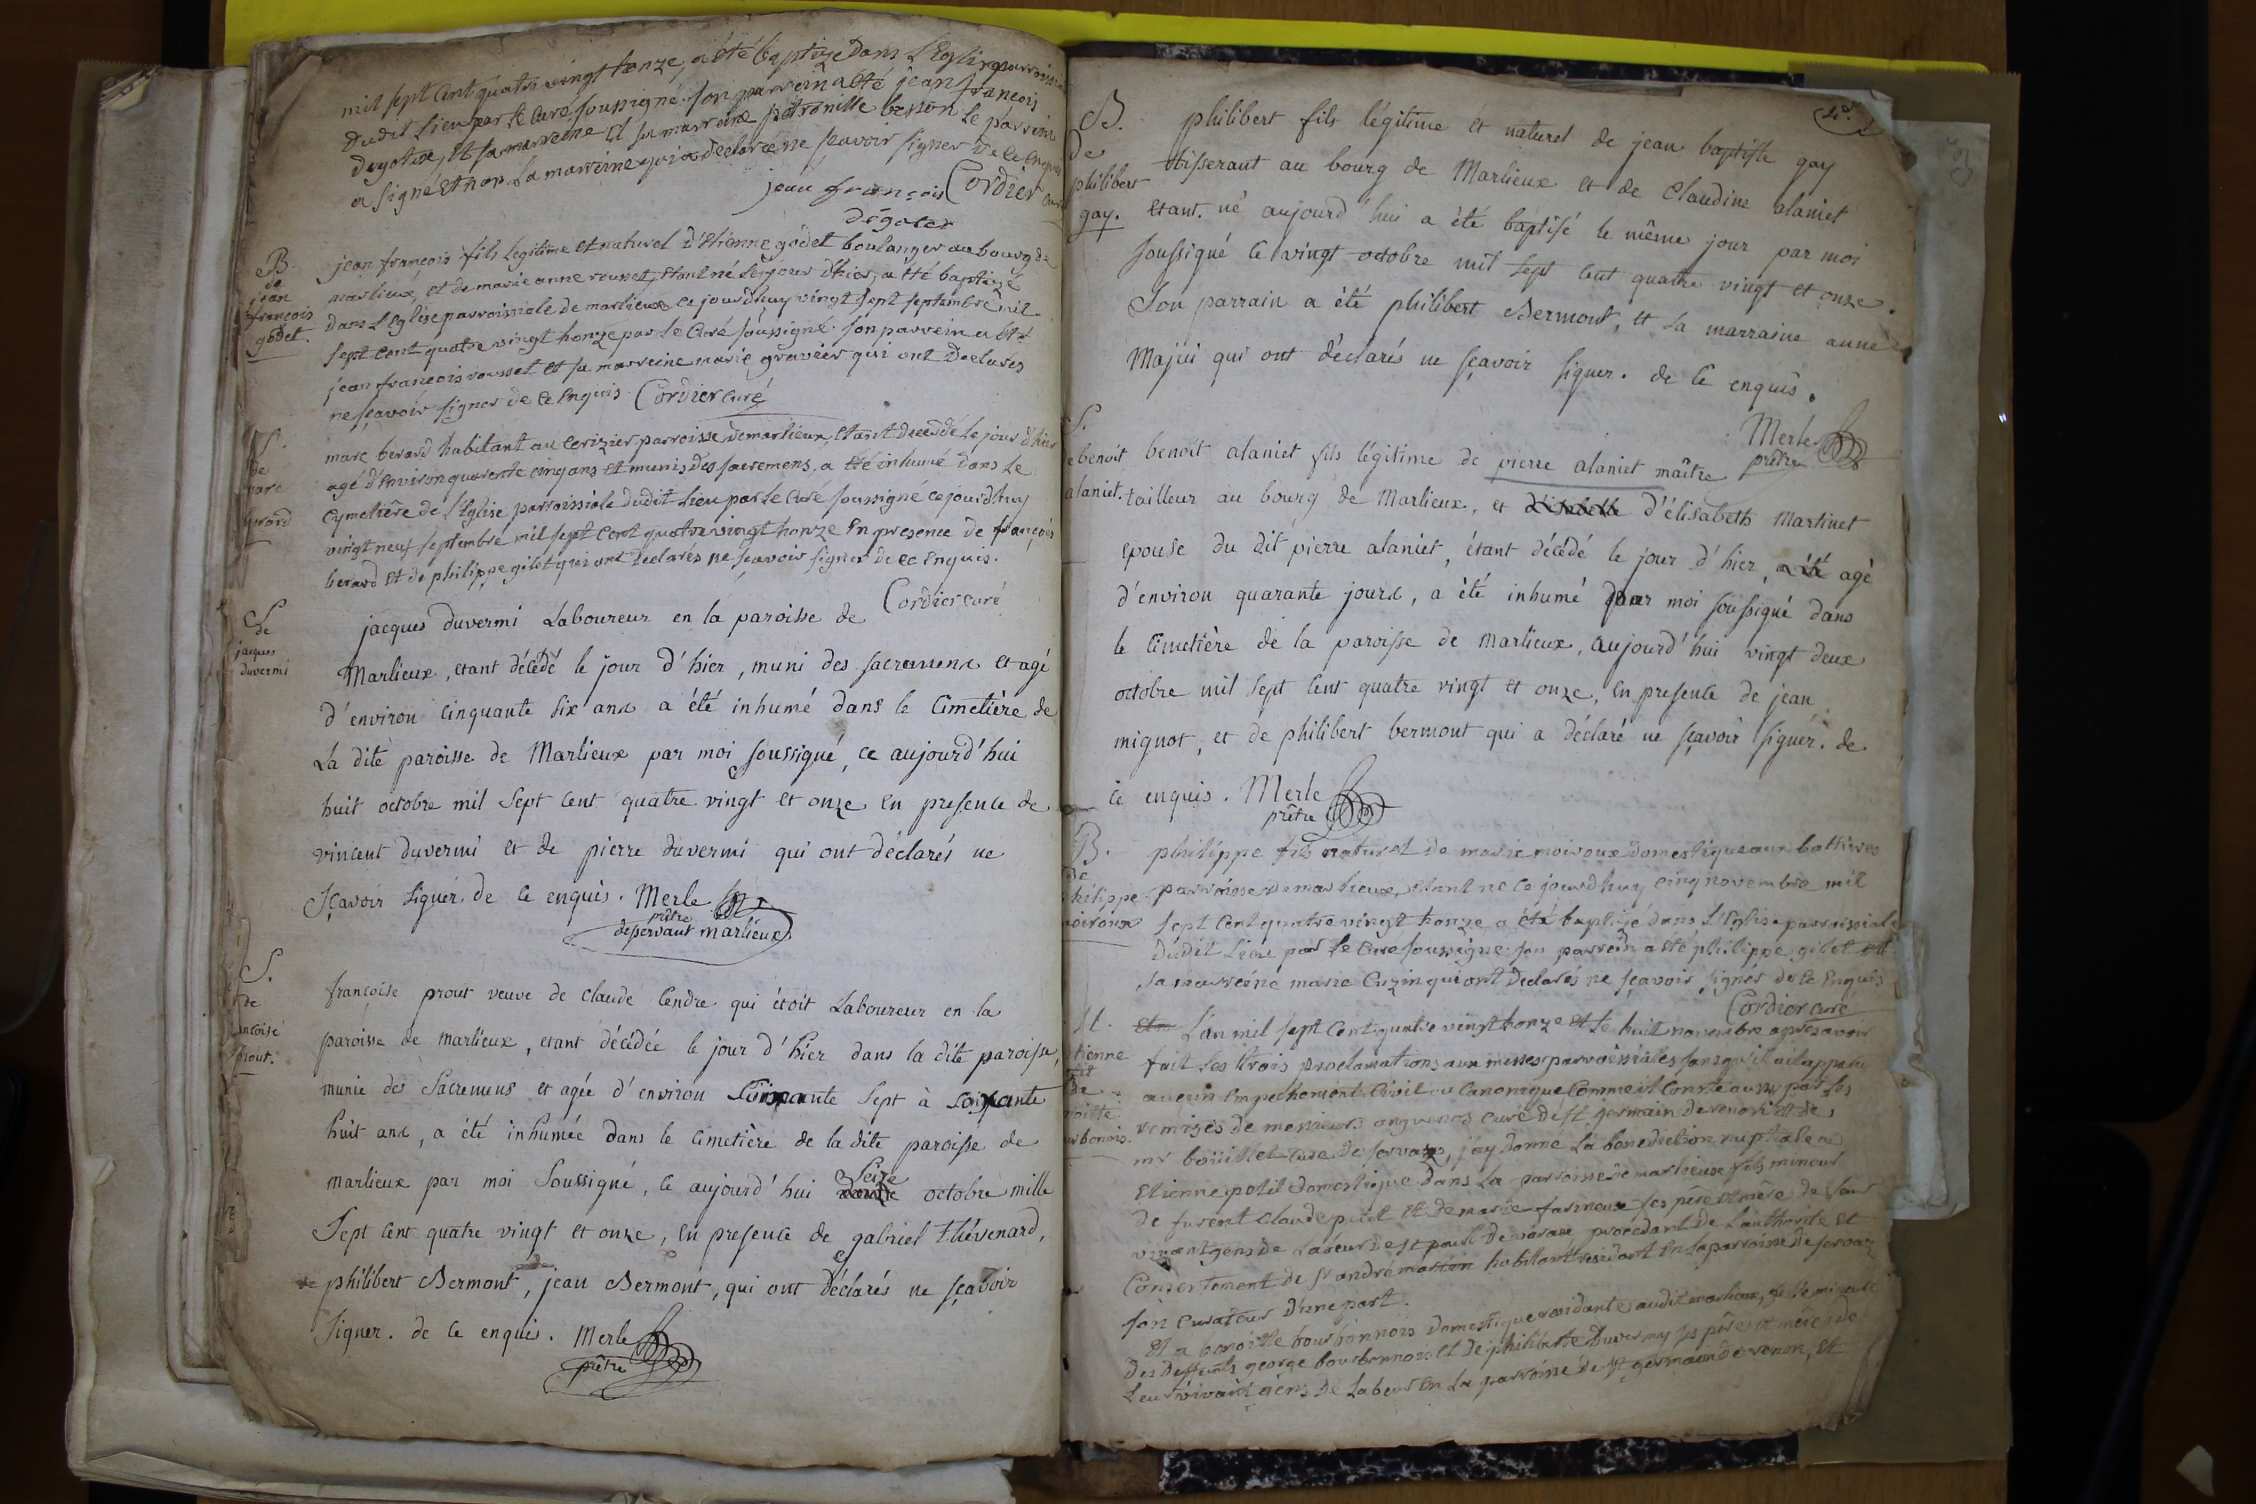 mil sept cent quatre vingt honze, a été baptizé dans L'Eglise parroissiale
dudit Lieu par le Curé soussigné. son parrein a été jean françois
degoter, et sa marreine et sa marraine petronille besson le parrein
a signé et non La marreine qui a declaré ne sçavoir signer de ce Enquis
jean françois Cordier Curé
dégoter
B.
de
jean
françois
godet.
jean françois fils Legitime et naturel d'Etienne godet boulanger au bourg de
marlieux, et de marie anne rousset, etant né le jour d'hier, a été baptizé
dans L'Eglise parroissiale de marlieux ce jourd'huy vingt sept septembre mil
sept cent quatre vingt honze par le Curé soussigné. son parrein a été
jean françois rousset et sa marreine marie gravier qui ont declarés
ne sçavoir signer de ce Enquis. Cordier Curé
S.
de
marc
berard
marc berard habitant au Cerizier parroisse de marlieux, etant decedé le jour d'hier
agé d'Environ quarente cinq ans et munis des sacremens, a été inhumé dans le
Cymetière de L'Eglise parroissiale dudit Lieu par le Curé soussigné ce jourd'huy
vingt neuf septembre mil sept Cent quatre vingt honze En presence de françois
berard et de philippe gilet qui ont declarés ne sçavoir signer de ce Enquis.
Cordier Curé
S.
de
jacques
duvermi
jacques duvermi Laboureur en la paroisse de
Marlieux, etant décédé le jour d'hier, muni des sacremens et agé
d'environ cinquante six ans a été inhumé dans le Cimetière de
La dite paroisse de Marlieux par moi soussigné, ce aujourd'hui
huit octobre mil sept cent quatre vingt et onze en presence de
vincent duvermi et de pierre duvermi qui ont déclarés ne
sçavoir signer. de ce enquis. Merle
prêtre
desservant marlieux
S.
de
françoise
prout.
françoise prout veuve de Claude Cendre qui étoit Laboureur en la
paroisse de Marlieux, etant décédée le jour d'hier dans la dite paroisse,
munie des Sacremens et agée d'environ Soixante sept à soixante
huit ans, a été inhumée dans le Cimetière de la dite paroisse de
marlieux par moi Soussigné, ce aujourd'hui seize octobre mille
Sept cent quatre vingt et onze, en presence de gabriel thévenard,
philibert Bermont, jean Bermont, qui ont déclarés ne sçavoir
signer. de ce enquis. Merle
prêtre
B.
de
philibert
gay.
philibert fils légitime et naturel de jean baptiste gay
tisserant au bourg de Marlieux et de Claudine alaniet
etant né aujourd'hui a été baptisé le même jour par moi
soussigné le vingt octobre mil sept cent quatre vingt et onze.
Son parrain a été philibert Bermont, et sa marraine anne
Majui qui ont déclarés ne sçavoir signer. de ce enquis.
Merle
prêtre
S.
de benoit
alaniet.
benoit alaniet fils légitime de pierre alaniet maître
tailleur au bourg de Marlieux, et d'élisabeth Martinet
epouse du dit pierre alaniet, étant décédé le jour d'hier, a été agé
d'environ quarante jours, a été inhumé par moi soussigné dans
le Cimetière de la paroisse de Marlieux, aujourd'hui vingt deux
octobre mil sept cent quatre vingt et onze, en presence de jean
mignot, et de philibert bermont qui a déclaré ne sçavoir signer. de
ce enquis. Merle
prêtre
B.
de
philippe
moiroux
philippe fils naturel de marie moiroux domestique aux battieres
parroisse de marlieux, etant né ce jourd'huy cinq novembre mil
sept Cent quatre vingt honze a été baptizé dans L'Eglise parroissiale
dudit Lieu par le Curé soussigné. son parrein a été philippe gilet et
sa marreine marie Cuzin qui ont declarés ne sçavoir signer de ce Enquis
Cordier Curé
M.
etienne
petit
de
benoitte
bourbonois.
L'an mil sept Cent quatre vingt honze et le huit novembre apres avoir
fait les trois proclamations aux messes parroissiales sans qu'il ait apparu
aucun Empechement Civil ou Canonique Comme il Conste aussy par les
remises de messieurs curé de st germain de renon et de
mr boüillet Curé de servaz, j'ay donné La benediction nuptiale a
Etienne petit domestique dans La parroisse de marlieux fils mineur
de furent Claude petit et de marie farineux ses père et mère de leur
vivant gens de Labeur de st paul de varax procedant de L'authorité et
Consentement de sr andré habittant residant En La parroisse de servaz
son Curateur d'une part.
Et a benoitte bourbonnois domestique residante audit marlieux, fille mineure
des deffunts george bourbonnois et de philiberte duvermay ses père et mère de
Leur vivant gens de Labeur En La parroisse de st germain de renon, et